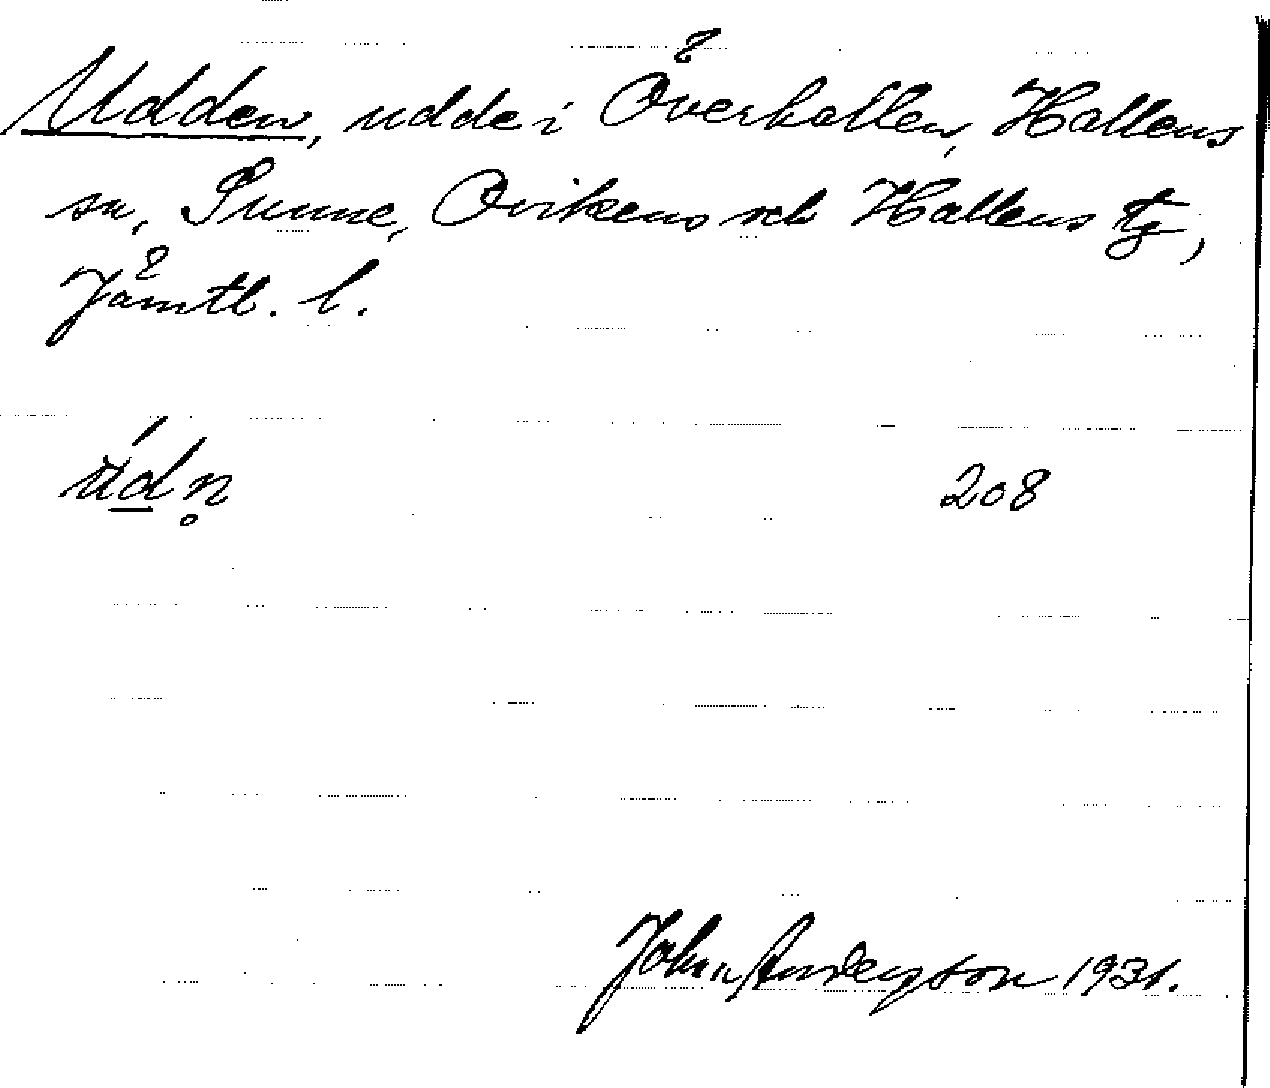 Udden, udde i Överhallen, Hallens
sn, Sunne, Ovikens och Hallens tg,
Jämtl. l.
208
John Anderson 1931.